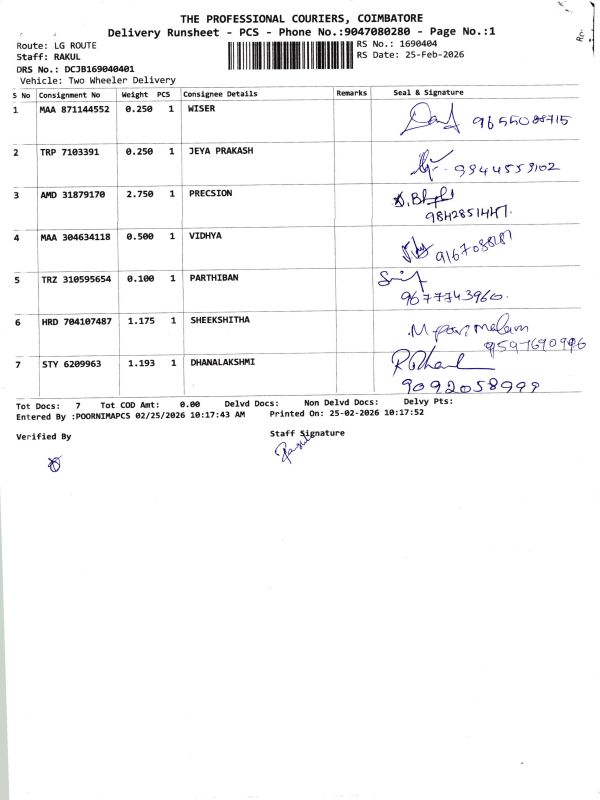 THE PROFESSIONAL COURIERS, COIMBATORE
Delivery Runsheet - PCS - Phone No.:9047080280 - Page No.:1
Route: LG ROUTE
RS No.: 1690404
Staff: RAKUL
RS Date: 25-Feb-2026
DRS No.: DCJB169040401
Vehicle: Two Wheeler Delivery
S No Consignment No Weight PCS Consignee Details Remarks Seal & Signature
1 MAA 871144552 0.250 1 WISER
2 TRP 7103391 0.250 1 JEYA PRAKASH 9944559102
3 AMD 31879170 2.750 1 PRECSION
9842851447.
4 MAA 304634118 0.500 1 VIDHYA
5 TRZ 310595654 0.100 1 PARTHIBAN
9677743960.
6 HRD 704107487 1.175 1 SHEEKSHITHA
9597690996
7 STY 6209963 1.193 1 DHANALAKSHMI
9092058999
Tot Docs: 7 Tot COD Amt: 0.00 Delvd Docs: Non Delvd Docs: Delvy Pts:
Entered By :POORNIMAPCS 02/25/2026 10:17:43 AM Printed On: 25-02-2026 10:17:52
Verified By
Staff Signature